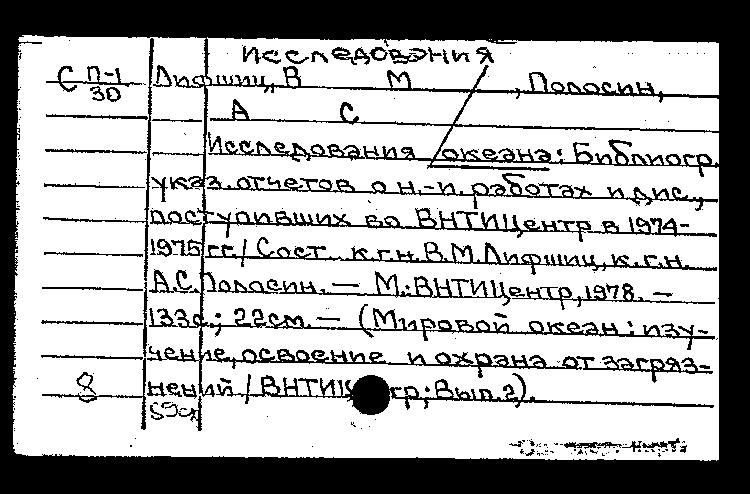 исследования
С П-1/30 Лифшиц, В М , Полосин,
А С
Исследования океана: Библиогр.
указ. отчетов о н.-и. работах и дис.,
поступивших во ВНТИЦентр в 1974-
1975 гг./ Сост. к.г.н. В.М.Лифшиц, к.г.н.
А.С.Полосин. — М.:ВНТИЦентр, 1978. —
133с.; 22см. — (Мировой океан: изу-
чение, освоение и охрана от загряз-
8 нений / ВНТИЦ тр; Вып. 2).